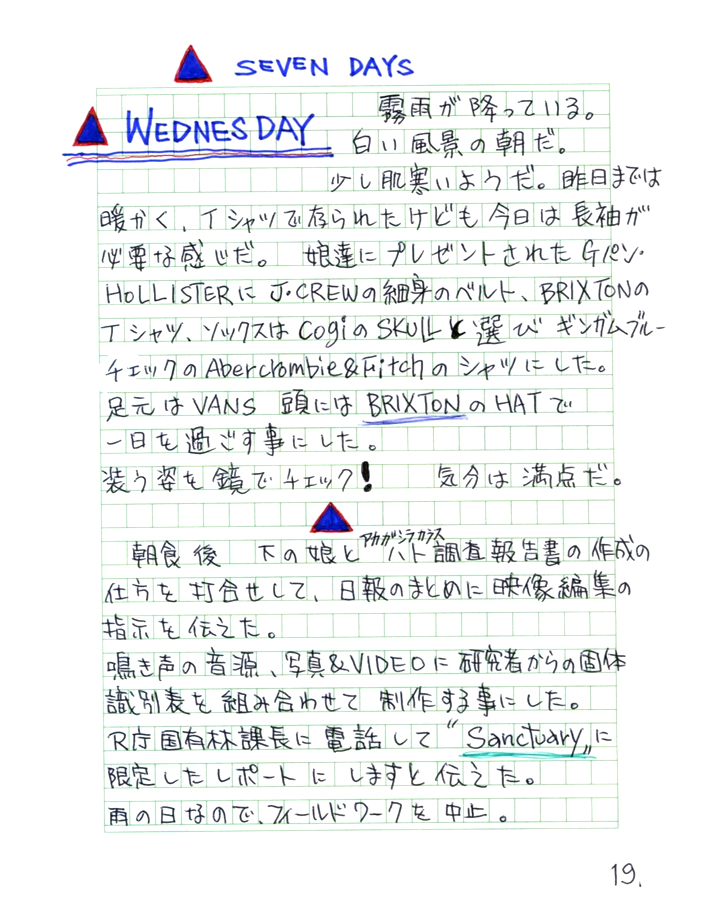 SEVEN DAYS
WEDNESDAY
霧雨が降っている。
白い風景の朝だ。
少し肌寒いようだ。昨日までは
暖かく、Tシャツで居られたけども今日は長袖が
必要な感じだ。 娘達にプレゼントされたGパン・
HOLLISTERにJ・CREWの細身のベルト、BRIXTONの
Tシャツ、ソックスはCogiのSKULLを選び ギンガムブルー
チェックのAbercrombie&Fitchのシャツにした。
足元はVANS 頭にはBRIXTONのHATで
一日を過ごす事にした。
装う姿を鏡でチェック! 気分は満点だ。
アカガシラカラス
朝食後 下の娘とバト調査報告書の作成の
仕方を打合せして、日報のまとめに映像編集の
指示を伝えた。
鳴き声の音源、写真&VIDEOに研究者からの固体
識別表を組み合わせて制作する事にした。
R庁国有林課長に電話して“Sanctuary„に
限定したレポートにしますと伝えた。
雨の日なので、フィールドワークを中止。
19.